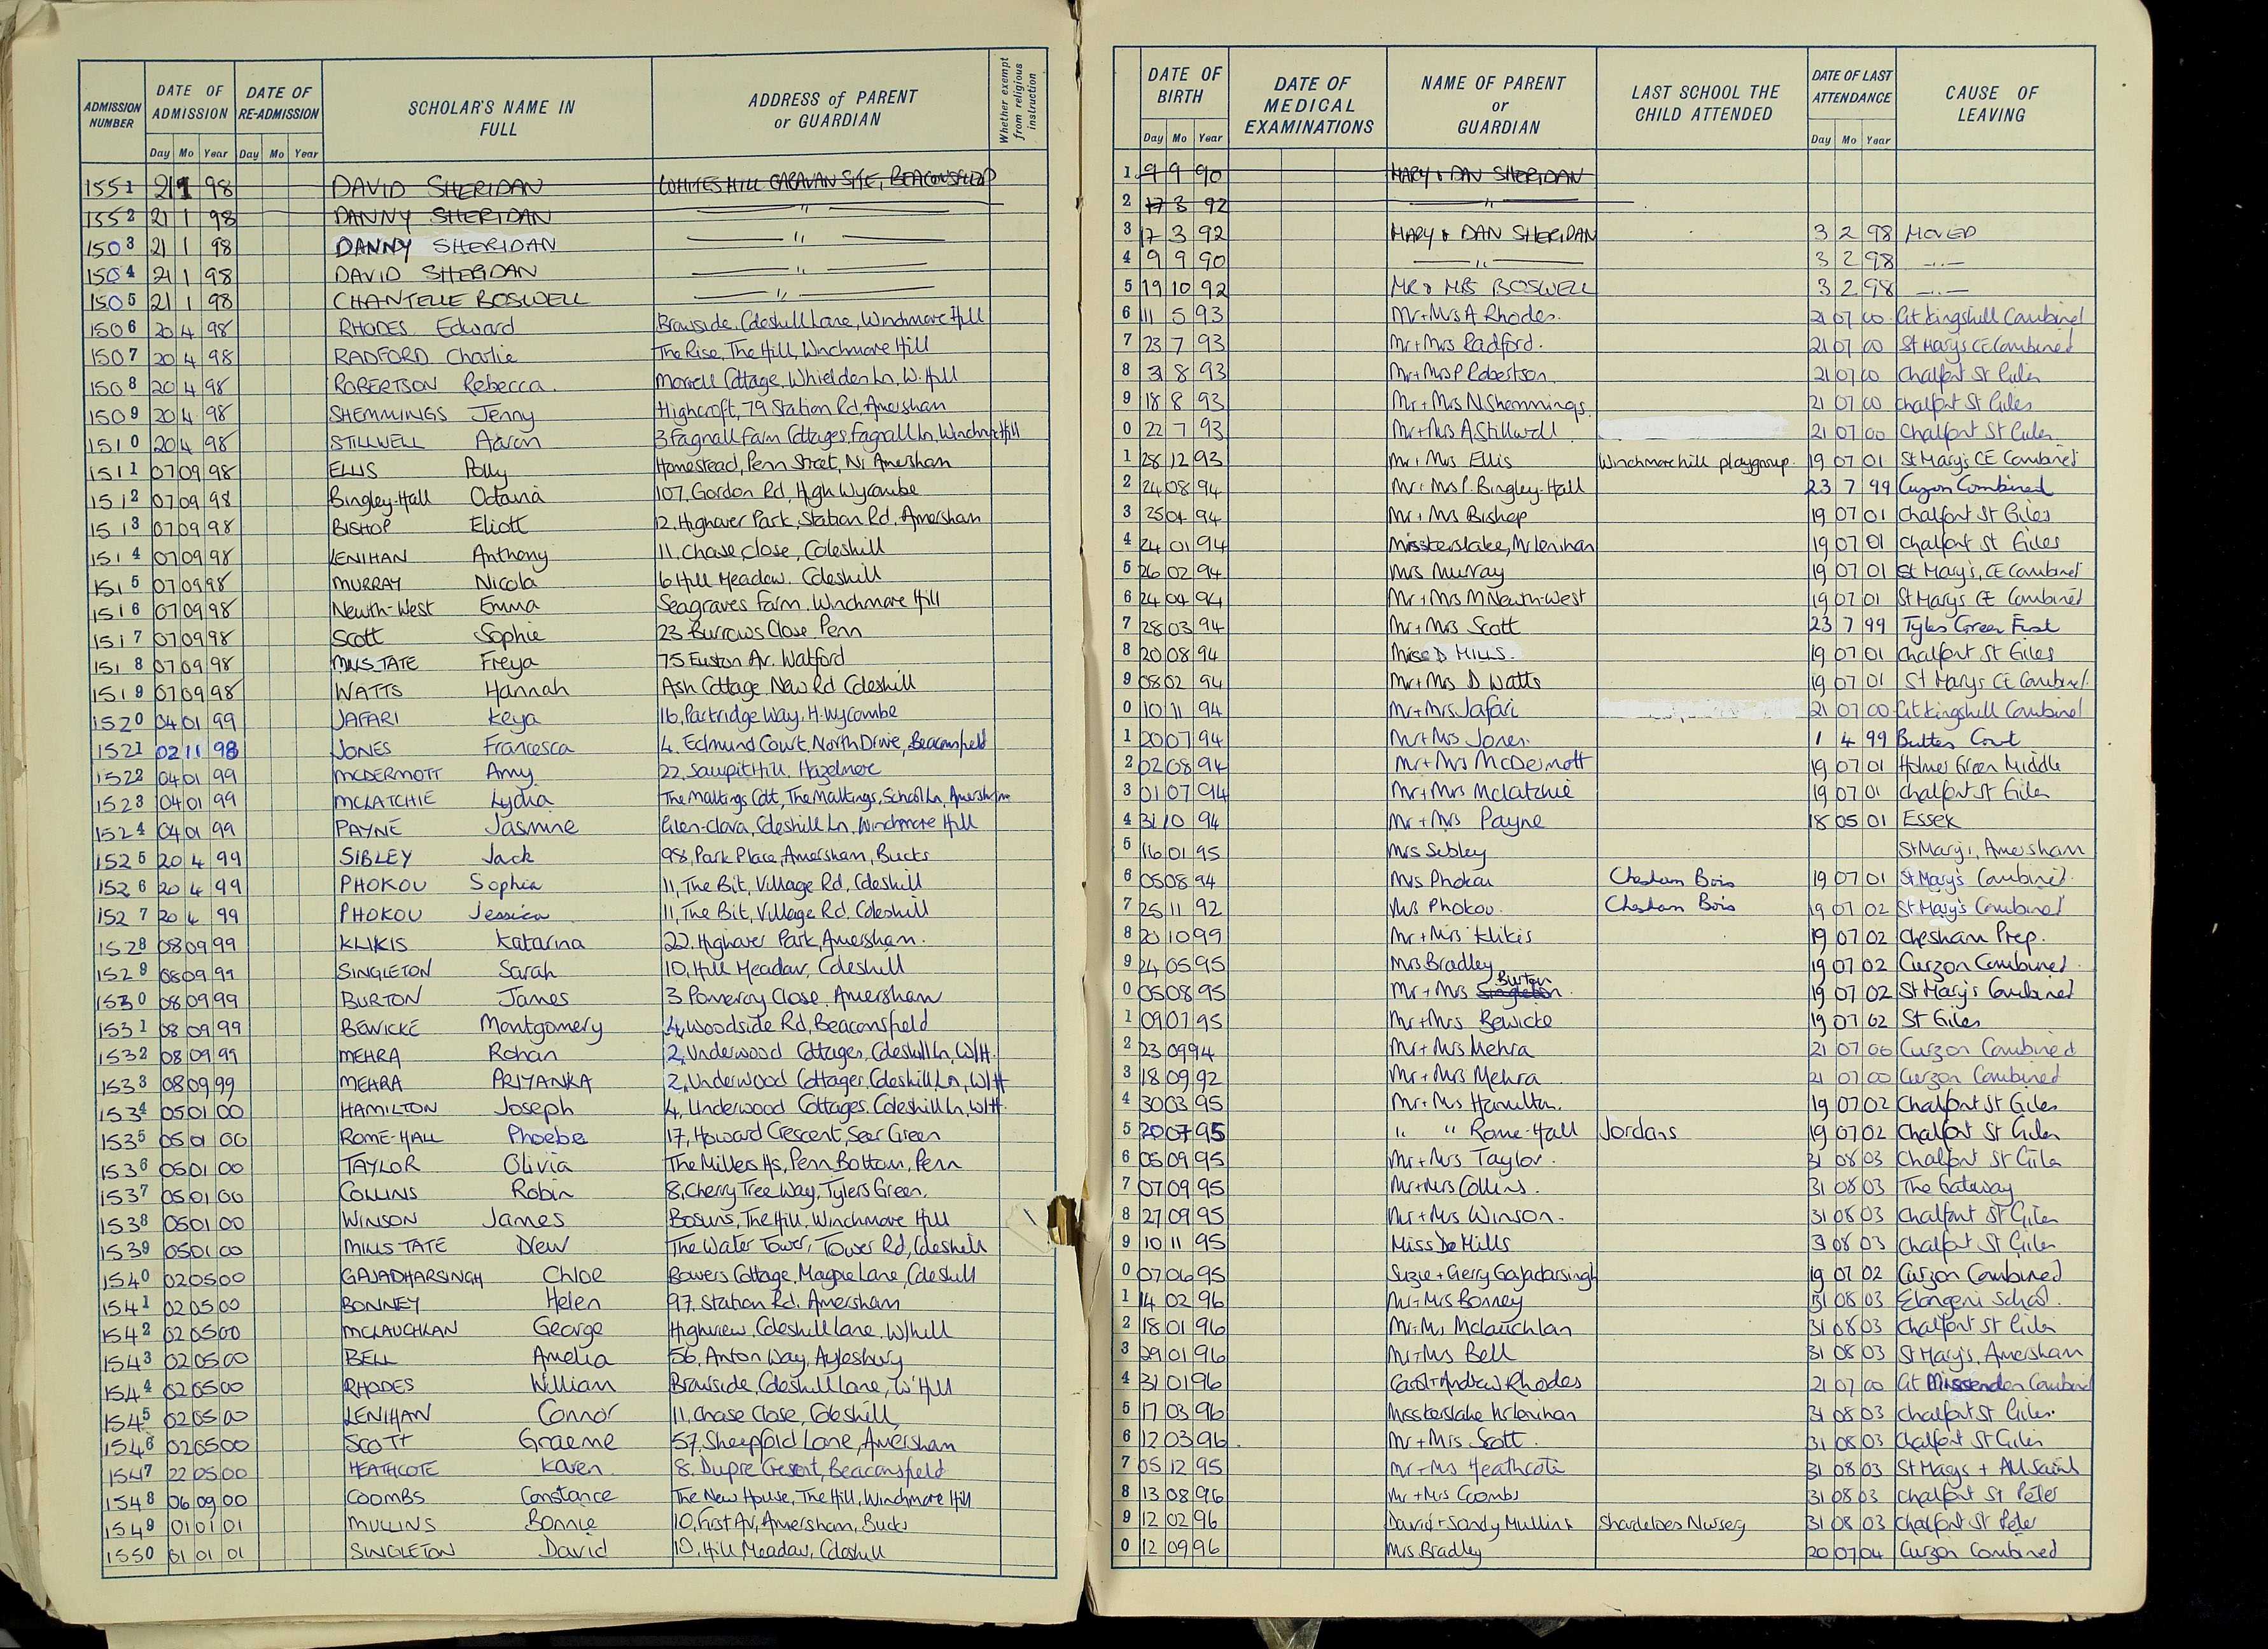 ADMISSION NUMBER | DATE OF ADMISSION | DATE OF RE-ADMISSION | SCHOLAR'S NAME IN FULL | ADDRESS of PARENT or GUARDIAN | Whether exempt from religious instruction | DATE OF BIRTH | DATE OF MEDICAL EXAMINATIONS | NAME OF PARENT or GUARDIAN | LAST SCHOOL THE CHILD ATTENDED | DATE OF LAST ATTENDANCE | CAUSE OF LEAVING
Day Mo Year Day Mo Year | Day Mo Year | Day Mo Year
1551 21 1 98 DAVID SHERIDAN WHITES HILL CARAVAN SITE, BEACONSFIELD 1 9 9 90 MARY & DAN SHERIDAN
1552 21 1 98 DANNY SHERIDAN — " — 2 17 3 92 — " —
1503 21 1 98 DANNY SHERIDAN — " — 3 17 3 92 MARY & DAN SHERIDAN 3 2 98 MOVED
1504 21 1 98 DAVID SHERIDAN — " — 4 9 9 90 — " — 3 2 98 — " —
1505 21 1 98 CHANTELLE BOSWELL — " — 5 19 10 92 MR & MRS BOSWELL 3 2 98 — " —
1506 20 4 98 RHODES Edward Browside, Coleshill Lane, Winchmore Hill 6 11 5 93 Mr+Mrs A Rhodes. 21 07 00 Gt Kingshill Combined
1507 20 4 98 RADFORD Charlie The Rise, The Hill, Winchmore Hill 7 23 7 93 Mr+Mrs Radford. 21 07 00 St Marys CE Combined
1508 20 4 98 ROBERTSON Rebecca. Cottage, Whielden Ln, W. Hill 8 31 8 93 Mr+Mrs P Robertson. 21 07 00 Chalfont St Giles
1509 20 4 98 SHEMMINGS Jenny Highcroft, 79 Station Rd, Amersham 9 18 8 93 Mr+Mrs N Shemmings. 21 07 00 Chalfont St Giles
1510 20 4 98 STILLWELL Aaron 3 Fagnall Farm Cottages, Fagnall Ln, Winchmore Hill 0 22 7 93 Mr+Mrs A Stillwell. 21 07 00 Chalfont St Giles.
1511 07 09 98 ELLIS Polly Homestead, Penn Street, Nr Amersham 1 28 12 93 Mr+Mrs Ellis Winchmore hill playgroup. 19 07 01 St Mary's CE Combined
1512 07 09 98 Bingley-Hall Octavia 107, Gordon Rd, High Wycombe 2 24 08 94 Mr+Mrs P. Bingley-Hall 23 7 99 Curzon Combined
1513 07 09 98 BISHOP Eliott 12, Highover Park, Station Rd, Amersham 3 25 01 94 Mr+Mrs Bishop 19 07 01 Chalfont St Giles
1514 07 09 98 LENIHAN Anthony 11, Chase Close, Coleshill 4 24 01 94 Miss Kerslake, Mr Lenihan 19 07 01 Chalfont St Giles
1515 07 09 98 MURRAY Nicola 6 Hill Meadow. Coleshill 5 26 02 94 Mrs Murray 19 07 01 St Mary's, CE Combined
1516 07 09 98 Newth-West Emma Seagraves Farm. Winchmore Hill 6 24 04 94 Mr+Mrs M Newth-West 19 07 01 St Mary's CE Combined
1517 07 09 98 Scott Sophie 23 Burrows Close Penn 7 28 03 94 Mr+Mrs Scott 23 7 99 Tylers Green First
1518 07 09 98 MILLS TATE Freya 75 Euston Av. Watford 8 20 08 94 Miss D MILLS. 19 07 01 Chalfont St Giles
1519 07 09 98 WATTS Hannah Ash Cottage New Rd Coleshill 9 08 02 94 Mr+Mrs D Watts 19 07 01 St Marys CE Combined.
1520 04 01 99 JAFARI Keya 16, Partridge Way, H. Wycombe 0 10 11 94 Mr+Mrs Jafari 21 07 00 Gt Kingshill Combined
1521 02 11 98 JONES Francesca 4, Edmund Court, North Drive, Beaconsfield 1 20 07 94 Mr+Mrs Jones. 1 4 99 Butlers Court
1522 04 01 99 MCDERMOTT Amy 22, Sawpit Hill. Hazlemere 2 02 08 94 Mr+Mrs McDermott 19 07 01 Holmer Green Middle
1523 04 01 99 MCLATCHIE Lydia The Maltings Cott, The Maltings, School Ln, Amersham 3 01 07 94 Mr+Mrs Mclatchie 19 07 01 Chalfont St Giles
1524 04 01 99 PAYNE Jasmine Glen-Clova, Coleshill Ln, Winchmore Hill 4 31 10 94 Mr+Mrs Payne 18 05 01 ESSEX
1525 20 4 99 SIBLEY Jack 98, Park Place, Amersham, Bucks 5 16 01 95 Mrs Sibley St Mary's, Amersham
1526 20 4 99 PHOKOU Sophia 11, The Bit, Village Rd, Coleshill 6 05 08 94 Mrs Phokou Chesham Bois 19 07 01 St Mary's Combined.
1527 20 4 99 PHOKOU Jessica 11, The Bit, Village Rd. Coleshill 7 25 11 92 Mrs Phokou. Chesham Bois 19 07 02 St Mary's Combined
1528 08 09 99 KLIKIS Katarina 22, Highover Park, Amersham. 8 20 10 99 Mr+Mrs Klikis 19 07 02 Chesham Prep.
1529 08 09 99 SINGLETON Sarah 10, Hill Meadow, Coleshill 9 24 05 95 Mrs Bradley 19 07 02 Curzon Combined.
1530 08 09 99 BURTON James 3 Pomeroy Close. Amersham 0 05 08 95 Mr+Mrs Singleton Burton. 19 07 02 St Mary's Combined
1531 08 09 99 BEWICKE Montgomery 4, Woodside Rd, Beaconsfield 1 09 07 95 Mr+Mrs Bewicke 19 07 02 St Giles
1532 08 09 99 MEHRA Rohan 2, Underwood Cottages, Coleshill Ln, W/H. 2 23 09 94 Mr+Mrs Mehra 21 07 00 Curzon Combined
1533 08 09 99 MEHRA PRIYANKA 2, Underwood Cottages, Coleshill Ln, W/H 3 18 09 92 Mr+Mrs Mehra 21 07 00 Curzon Combined
1534 05 01 00 HAMILTON Joseph 4, Underwood Cottages. Coleshill Ln, W/H. 4 30 03 95 Mr+Mrs Hamilton. 19 07 02 Chalfont St Giles
1535 05 01 00 ROME-HALL Phoebe 17, Howard Crescent, Seer Green 5 20 07 95 " " Rome-Hall Jordans 19 07 02 Chalfont St Giles
1536 05 01 00 TAYLOR Olivia The Millers Hs, Penn Bottom, Penn 6 05 09 95 Mr+Mrs Taylor. 31 08 03 Chalfont St Giles
1537 05 01 00 COLLINS Robin 8, Cherry Tree Way, Tylers Green, 7 07 09 95 Mr+Mrs Collins. 31 08 03 The Gateway
1538 05 01 00 WINSON James Bosuns, The Hill, Winchmore Hill 8 27 09 95 Mr+Mrs Winson. 31 08 03 Chalfont St Giles
1539 05 01 00 MILLS TATE Drew The Water Tower, Tower Rd, Coleshill 9 10 11 95 Miss De Mills 31 08 03 Chalfont St Giles
1540 02 05 00 GAJADHARSINGH Chloe Bowers Cottage, Magpie Lane, Coleshill 0 07 06 95 Suzie+Gerry Gajadarsingh 19 07 02 Curzon Combined
1541 02 05 00 BONNEY Helen 97, Station Rd. Amersham 1 14 02 96 Mr+Mrs Bonney 31 08 03 Elangeni School.
1542 02 05 00 MCLAUCHLAN George Highview, Coleshill Lane, W/hill 2 18 01 96 Mr+Mrs Mclauchlan 31 08 03 Chalfont St Giles
1543 02 05 00 BELL Amelia 56, Anton Way, Aylesbury 3 29 01 96 Mr+Mrs Bell 31 08 03 St Mary's, Amersham
1544 02 05 00 RHODES William Browside, Coleshill Lane, W'Hill 4 31 01 96 Carol+Andrew Rhodes 21 07 00 Gt Missenden Combined
1545 02 05 00 LENIHAN Connor 11, Chase Close, Coleshill, 5 17 03 96 Miss Kerslake Mr Lenihan 31 08 03 Chalfont St Giles.
1546 02 05 00 SCOTT Graeme 57, Sheepfold Lane, Amersham 6 12 03 96. Mr+Mrs Scott. 31 08 03 Chalfont St Giles
1547 22 05 00 HEATHCOTE Karen 8, Dupre Cresent, Beaconsfield 7 05 12 95 Mr+Mrs Heathcote 31 08 03 St Marys + All Saints
1548 06 09 00 COOMBS Constance The New House, The Hill, Winchmore Hill 8 13 08 96 Mr+Mrs Coombs 31 08 03 Chalfont St Peter
1549 01 01 01 MULLINS Bonnie 10, First Av, Amersham, Bucks 9 12 02 96 David+Sandy Mullins Shardeloes Nursery 31 08 03 Chalfont St Peter
1550 01 01 01 SINGLETON David 10, Hill Meadow, Coleshill 0 12 09 96 Mrs Bradley 20 07 04 Curzon Combined